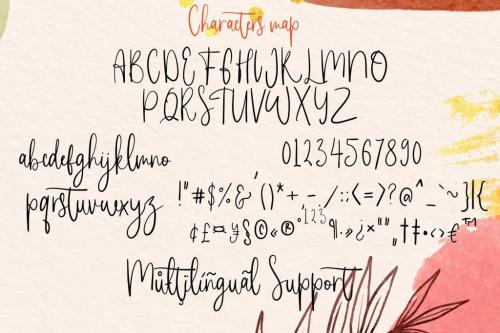 Characters map
ABCDEFGHIJKLMNO
PQRSTUVWXYZ
abcdefghijklmno
pqrstuvwxyz
01234567890
!"#$%&'()*+,-./:;<=>?@^_`~}|{
¢£¤¥§©«®°¹²³¶·»¿×"",,†‡•‹›€™
Můltįlíñguãl Support